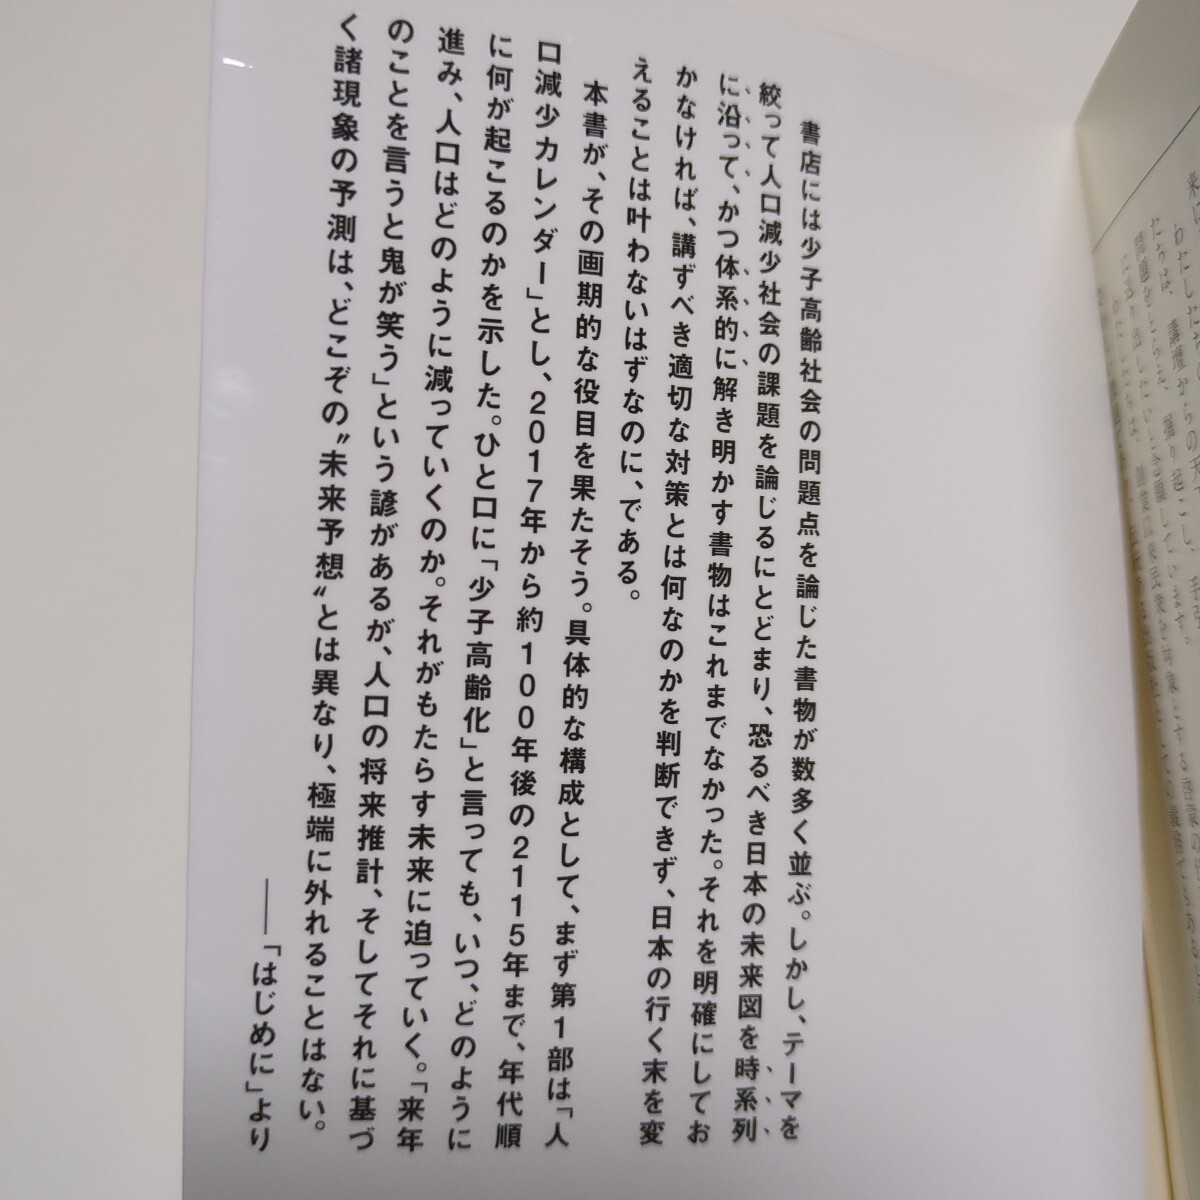 書店には少子高齢社会の問題点を論じた書物が数多く並ぶ。しかし、テーマを
絞って人口減少社会の課題を論じるにとどまり、恐るべき日本の未来図を時系列
に沿って、かつ体系的に解き明かす書物はこれまでなかった。それを明確にしてお
かなければ、講ずべき適切な対策とは何なのかを判断できず、日本の行く末を変
えることは叶わないはずなのに、である。
本書が、その画期的な役目を果たそう。具体的な構成として、まず第1部は「人
口減少カレンダー」とし、2017年から約100年後の2115年まで、年代順
に何が起こるのかを示した。ひと口に「少子高齢化」と言っても、いつ、どのように
進み、人口はどのように減っていくのか。それがもたらす未来に迫っていく。「来年
のことを言うと鬼が笑う」という諺があるが、人口の将来推計、そしてそれに基づ
く諸現象の予測は、どこぞの〝未来予想〟とは異なり、極端に外れることはない。
――「はじめに」より